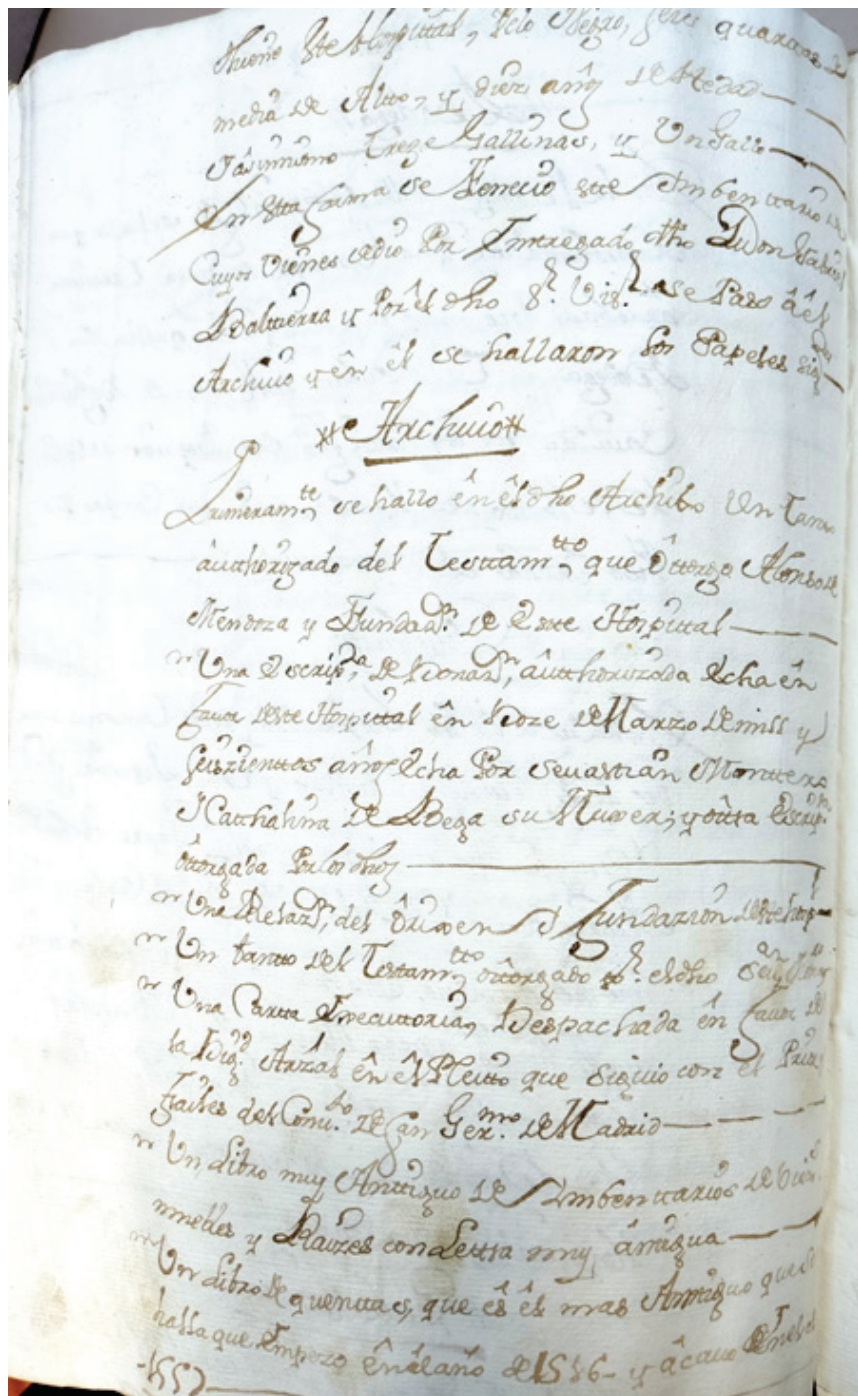 Hierro deste Hospital, Pelo Negro, seis quarttas y
media de Altto, y diezi años de hedad
Yasimismo treze Gallinas, y Un Gallo
En Esta forma se Fenecio este Imbenttario de
Cuyos vienes sedio Por Enttregado dho Don Gabriel
Balttierra y Por el dho Sr. Visr. se Paso âel
Archivo y ên êl se hallaron los Papeles sigtes
Archivo
Primeramte se hallo ên êl dho Archibo Un tanto
âuthorizado del Testtamtto que Ôttorga Alonso de
Mendoza y Fundaon. de Este Hospittal
Una Escripra. de Donaon, authorizada hecha ên
favor deste Hospittal ên Doze de Marzo de mill y
seiszienttos años hecha Por Sevasttian Monttero
Catthalina de Bega su Muxer; y ôttra Escripra
ôttorgada Por los dhos
Una Relazon, del Ôrixen y Fundazion deste hospl
Un tantto del Testamtto ôttorgado pr. el dho
Una Cartta Executtoria, Despachada ên favor de
la Digd. Arzal ên êl Pleitto que siguio con el Prior
frailes del Convto de San Germo. de Madrid
Un Libro muy Anttiguo de Imbenttarios de vienes
muebles y Raizes con Lettra muy ânttigua
Un Libro de quenttas, que ês êl mas Anttiguo que se
halla que Empezo ên êl año de 1516 y âcavo Enel de
1557